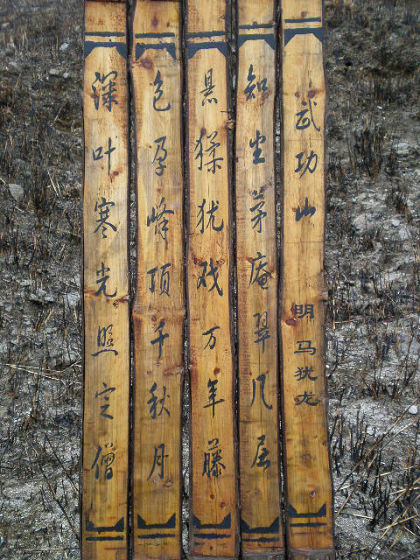 武功山 明 马犹龙
知尘茅庵翠几层
悬猱犹戏万年藤
色孕峰顶千秋月
深叶寒光照定僧